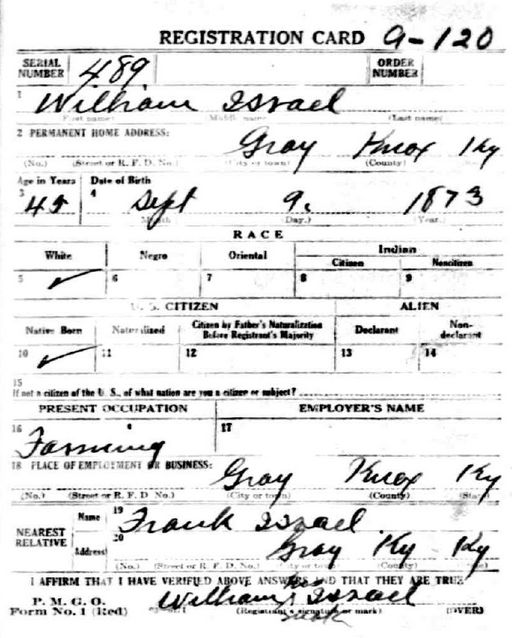 REGISTRATION CARD 9-120
SERIAL NUMBER 489 ORDER NUMBER
1 William Israel
(First name) (Middle name) (Last name)
2 PERMANENT HOME ADDRESS:
Gray Knox Ky
(No.) (Street or R. F. D. No.) (City or town) (County)
Age in Years Date of Birth
3 45 4 Sept 9. 1873
(Month) (Day.) (Year.)
RACE
White Negro Oriental Indian
Citizen Noncitizen
5 ✓ 6 7 8 9
U. S. CITIZEN ALIEN
Native Born Naturalized Citizen by Father's Naturalization Before Registrant's Majority Declarant Non-declarant
10 ✓ 11 12 13 14
15
If not a citizen of the U. S., of what nation are you a citizen or subject?
PRESENT OCCUPATION EMPLOYER'S NAME
16 Farming 17
18 PLACE OF EMPLOYMENT OR BUSINESS:
Gray Knox Ky
(No.) (Street or R. F. D. No.) (City or town) (County) (State)
NEAREST RELATIVE Name 19 Frank Israel
Address 20 Gray Ky Ky
(No.) (Street or R. F. D. No.) (City or town) (County) (State)
I AFFIRM THAT I HAVE VERIFIED ABOVE ANSWERS AND THAT THEY ARE TRUE
P. M. G. O.
Form No. 1 (Red) William Israel
(Registrant's signature or mark) (OVER)